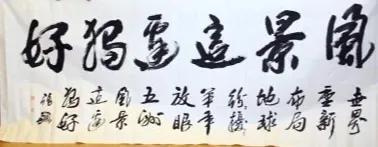 風景這邊獨好
世界
重新
布局
地球
紛擾
年
放眼
五洲
風景
這邊
獨好